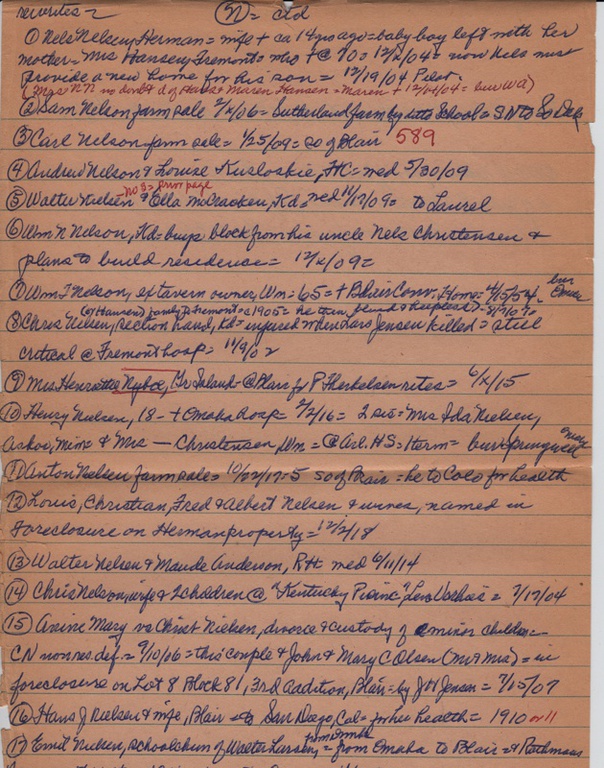 rewrites = (N) = ctd
① Nels Nelsen, Herman = wife + ca 14 yo ago = baby boy left with her
mother = Mrs Hansen, Fremont = who + @ 90 = 12/x/04 = now Nels must
provide a new home for his son = 12/19/04 Pilot.
(Mrs NN no doubt d of Hans & Maren Hansen = Maren + 12/04/04 = bur Wa)
② Sam Nelson farm sale 2/x/06 = Sutherland farm by School = SN to So Dak
③ Carl Nelson farm sale = 1/25/09 = so of Blair 589
④ Andrew Nelson & Louise Kusloskie, HC = med 5/30/09
no 8 = prior page
⑤ Walter Nielsen & Ella McCracken, Kd = med 11/17/09 = to Laurel
⑥ Wm N Nelson, Kd = buys block from his uncle Nels Christensen &
plans to build residence = 12/x/09 =
⑦ Wm F Nelson, ex tavern owner, Wn = 65 = + Blair Conv. Home = 4/5/54. bur
⑧ Chris Nielsen, section hand, Kd = injured when Lars Jensen killed = still
critical @ Fremont hosp = 11/9/02
⑨ Mrs Henriette Nyboe, Gr Island = @ Blair for P Therkelsen rites = 6/x/15
⑩ Henry Nielsen, 18 = + Omaha hosp = 2/2/16 = 2 sis = Mrs Ida Nielsen,
Askov, Minn & Mrs — Christensen, Wn = @ Arl. HS = 1 term = bur Spungwell
⑪ Anton Nielsen farm sale = 10/22/17 = 5 so of Blair = he to Colo for health
⑫ Louis, Christian, Fred & Albert Nelsen & wives, named in
foreclosure on Herman property = 12/2/18
⑬ Walter Nelsen & Maude Anderson, RH med 6/11/14
⑭ Chris Nelson, wife & 2 children @ "Kentucky Picnic," = 7/17/04
⑮ Axine Mary vs Christ Nielsen, divorce & custody of minor children =
CN nonres. def. = 9/10/06 = this couple & John & Mary C Olsen (Mr & Mrs) = in
foreclosure on Lot 8 Block 81, 3rd addition, Blair = by J H Jensen = 7/15/07
⑯ Hans J Nielsen & wife, Blair to San Diego, Cal = for her health = 1910 or 11
⑰ Emil Nielsen, school chum of Walter Larsen, = from Omaha to Blair = &